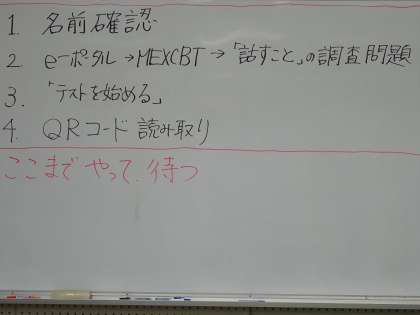 1. 名前確認
2. eーポータル→MEXCBT→「話すこと」の調査問題
3. 「テストを始める」
4. QRコード読み取り
ここまでやって、待つ